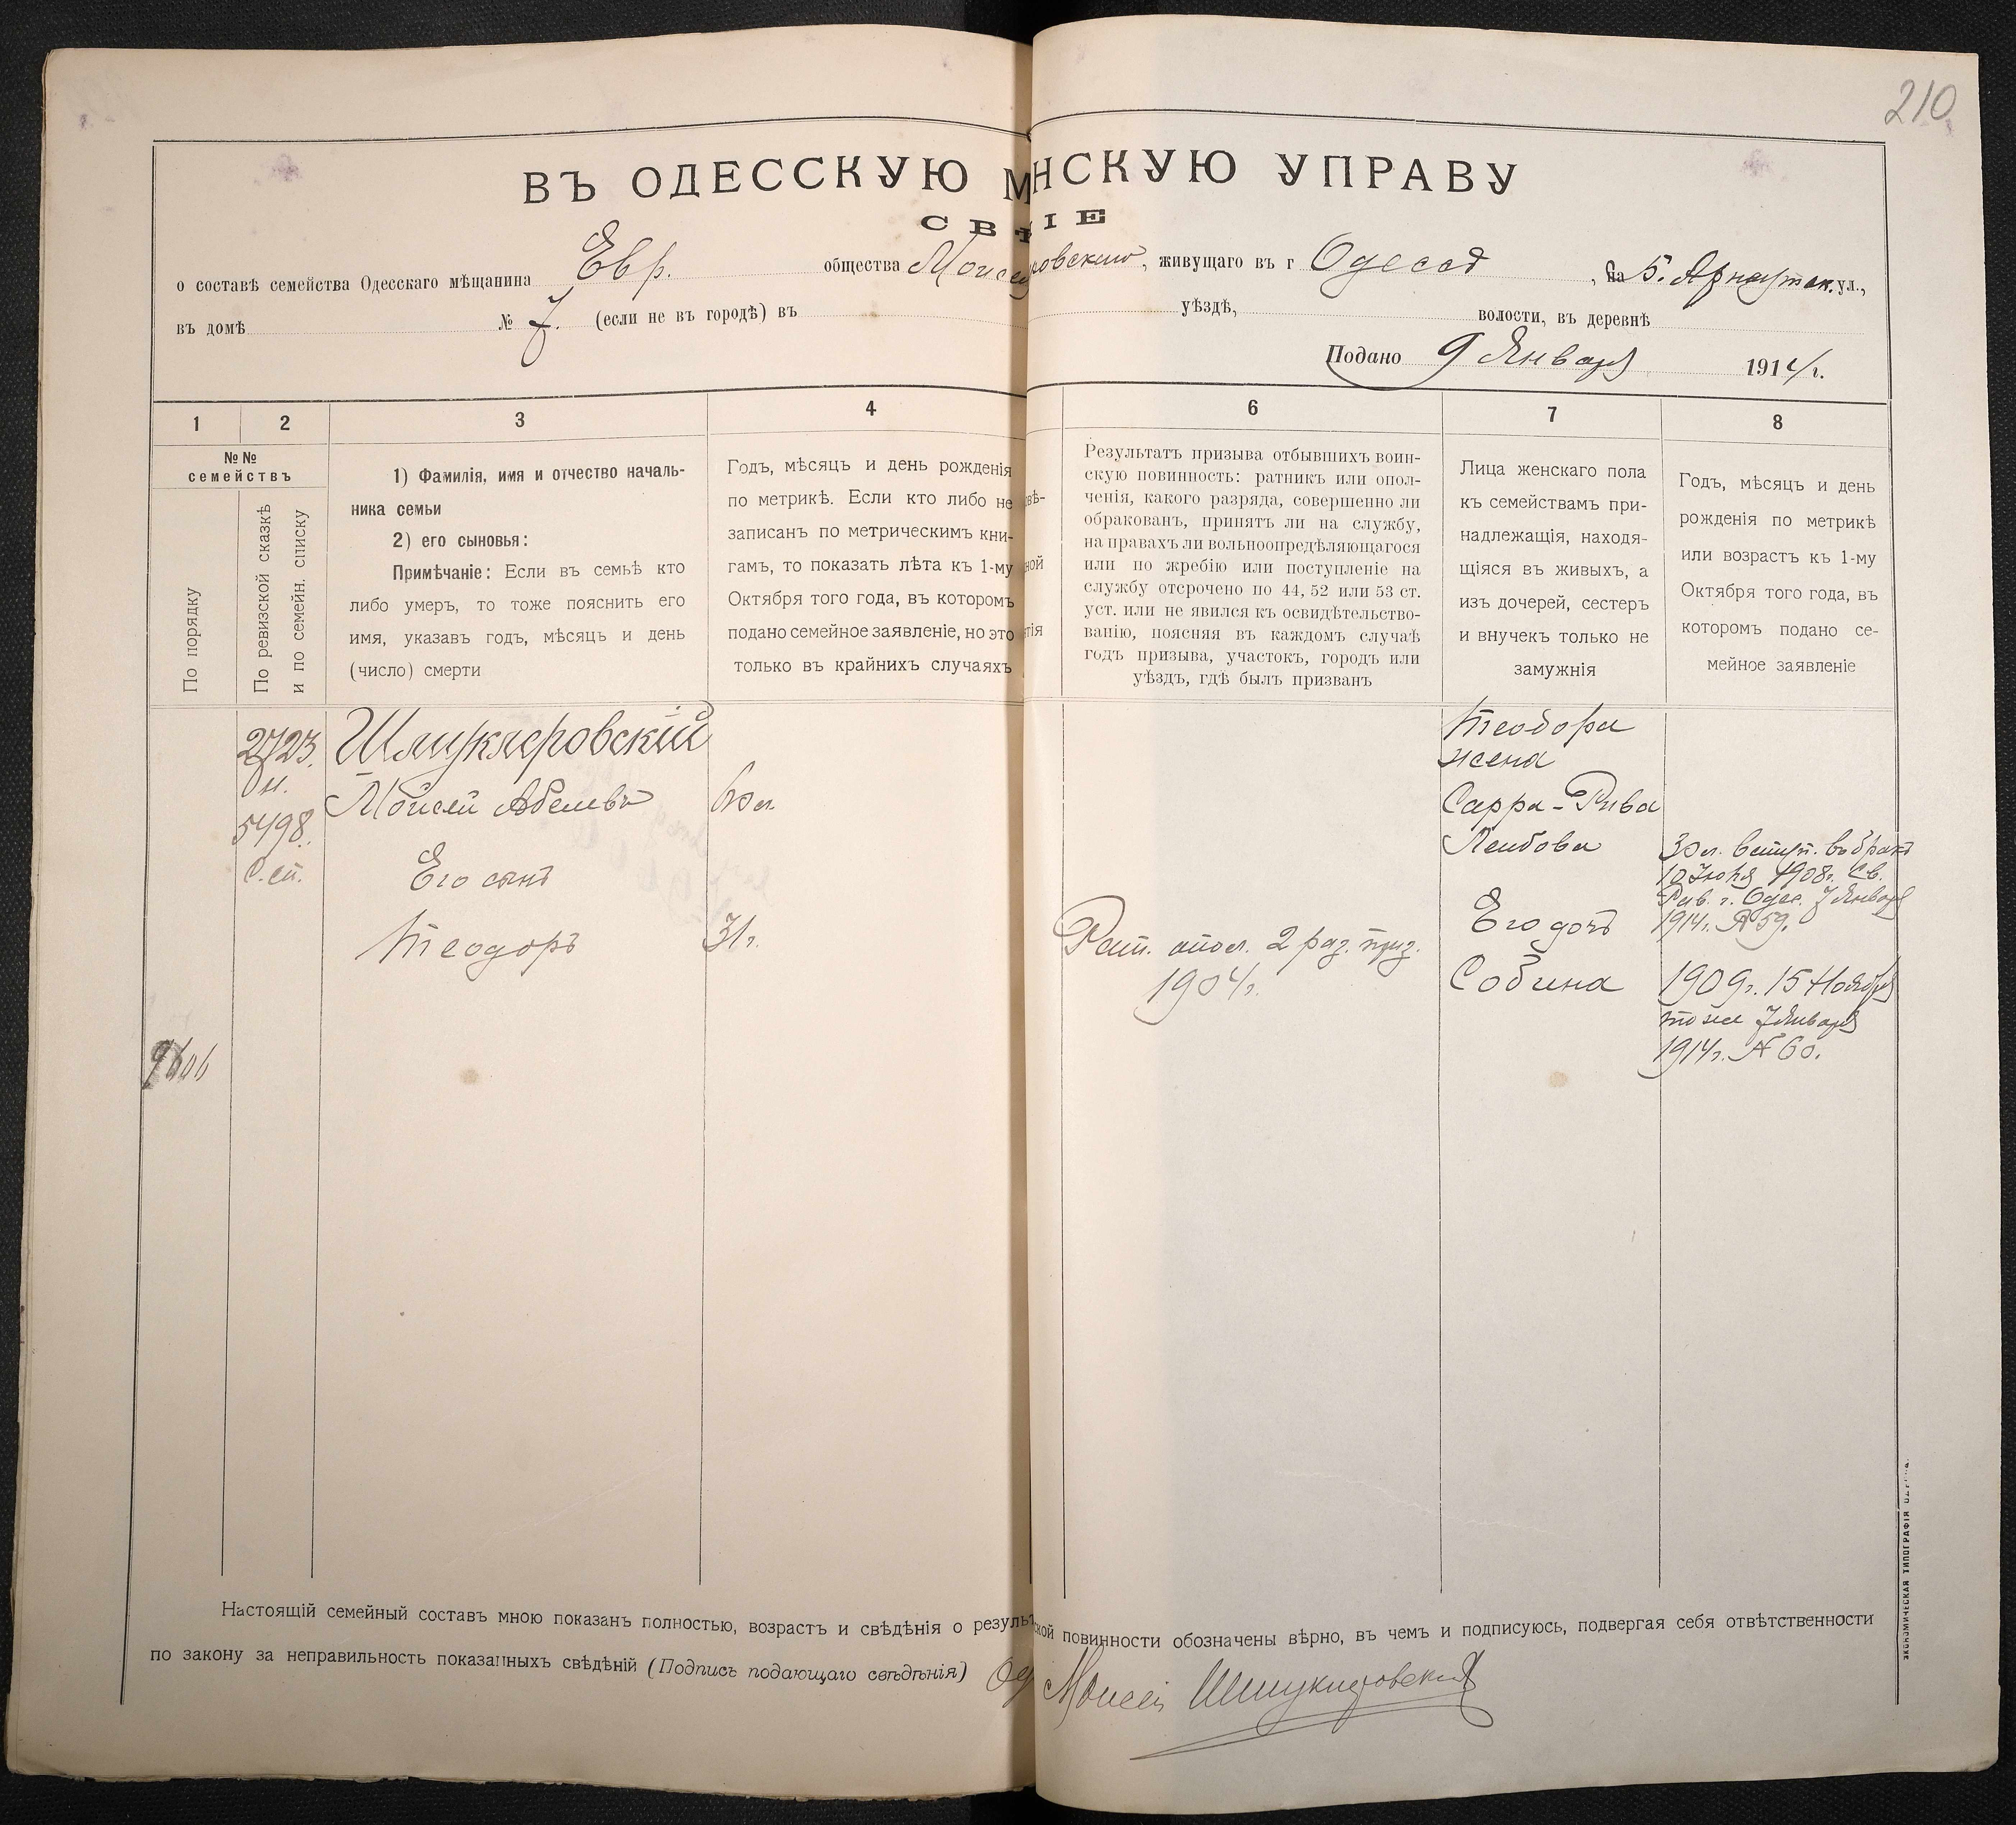 210
ВЪ ОДЕССКУЮ М НСКУЮ УПРАВУ
СВѢ ІЕ
о составѣ семейства Одесскаго мѣщанина Евр. общества живущаго въ г Одессѣ, на Б. Арнаутск. ул.,
въ домѣ № 7. (если не въ городѣ) въ уѣздѣ, волости, въ деревнѣ
Подано 9 Января 1914 г.
1 2 3 4 6 7 8
№№ семействъ
По порядку
По ревизской сказкѣ
и по семейн. списку
1) Фамилія, имя и отчество началь-
ника семьи
2) его сыновья:
Примѣчаніе: Если въ семьѣ кто
либо умеръ, то тоже пояснить его
имя, указавъ годъ, мѣсяцъ и день
(число) смерти
Годъ, мѣсяцъ и день рожденія
по метрикѣ. Если кто либо не
записанъ по метрическимъ кни-
гамъ, то показать лѣта къ 1-му
Октября того года, въ которомъ
подано семейное заявленіе, но это
только въ крайнихъ случаяхъ
Результатъ призыва отбывшихъ воин-
скую повинность: ратникъ или опол-
ченія, какого разряда, совершенно ли
обракованъ, принятъ ли на службу,
на правахъ ли вольноопредѣляющагося
или по жребію или поступленіе на
службу отсрочено по 44, 52 или 53 ст.
уст. или не явился къ освидѣтельство-
ванію, поясняя въ каждомъ случаѣ
годъ призыва, участокъ, городъ или
уѣздъ, гдѣ былъ призванъ
Лица женскаго пола
къ семействамъ при-
надлежащія, находя-
щіяся въ живыхъ, а
изъ дочерей, сестеръ
и внучекъ только не
замужнія
Годъ, мѣсяцъ и день
рожденія по метрикѣ
или возрастъ къ 1-му
Октября того года, въ
которомъ подано се-
мейное заявленіе
2723.
н.
5498.
С. сп.
Шмуклеровскій
Мойсей Абелевъ
Его сынъ
Теодоръ
31 г.
Рат. опол. 2 раз. приз.
1904 г.
Теодора
жена
Сарра-Рива
Лейбова
Его дочь
Собина
30 л. вступ. въ бракъ
10 Іюня 1908 г. Св.
Рав. г. Одес. 7 Января
1914 г. № 59.
1909 г. 15 Ноября
то же 7 Января
1914 г. № 60.
Настоящій семейный составъ мною показанъ полностью, возрастъ и свѣдѣнія о резуль ской повинности обозначены вѣрно, въ чемъ и подписуюсь, подвергая себя отвѣтственности
по закону за неправильность показанныхъ свѣдѣній (Подпись подающаго свѣдѣнія) Мойсей Шмуклеровскій
ЭКОНОМИЧЕСКАЯ ТИПОГРАФІЯ